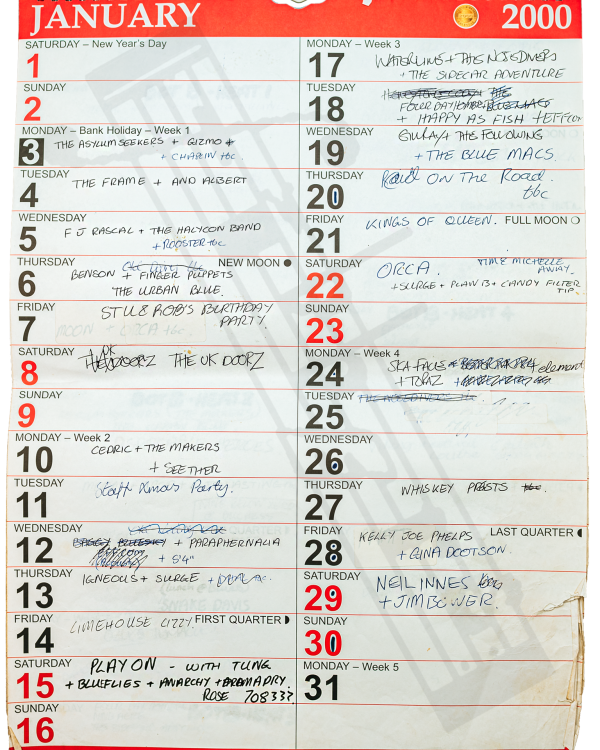 JANUARY
2000
SATURDAY – New Year's Day
1
SUNDAY
2
MONDAY – Bank Holiday – Week 1
3 THE ASYLUMSEEKERS + GIZMO +
+ CHAPLIN tbc
TUESDAY
4 THE FRAME + AND ALBERT
WEDNESDAY
5 F J RASCAL + THE HALYCON BAND
+ ROOSTER tbc
THURSDAY NEW MOON
6 BENSON + FINGER PUPPETS
THE URBAN BLUE.
FRIDAY
7 STU & ROB'S BURTHDAY
PARTY.
MOON - ORCA tbc
SATURDAY
8 THE UK DOORZ
SUNDAY
9
MONDAY – Week 2
10 CEDRIC + THE MAKERS
+ SEETHER
TUESDAY
11 Staff Xmas Party.
WEDNESDAY
12 + PARAPHERNALIA
+ 5'4"
THURSDAY
13 IGNEOUS + SURGE +
FRIDAY FIRST QUARTER
14 LIMEHOUSE LIZZY.
SATURDAY
15 PLAY ON - WITH TUNG
+ BLUEFLIES + ANARCHY + DRAMADRY.
ROSE 708337
SUNDAY
16
MONDAY – Week 3
17 WATERLINE + THIS NOSEDIVERS
+ THE SIDECAR ADVENTURE
TUESDAY
18 FOUR DAY HOMBRE
+ HAPPY AS FISH + EFFCO
WEDNESDAY
19 + THE FOLLOWING
+ THE BLUE MACS.
THURSDAY
20 ON THE ROAD.
tbc
FRIDAY FULL MOON
21 KINGS OF QUEEN.
SATURDAY
22 ORCA. TIM & MICHELLE
AWAY.
+ SURGE + PLAN B + CANDY FILTER
TIP.
SUNDAY
23
MONDAY – Week 4
24 SKA FACE + element
+ TOPAZ +
TUESDAY
25
WEDNESDAY
26
THURSDAY
27 WHISKEY PRIESTS tbc.
FRIDAY LAST QUARTER
28 KELLY JOE PHELPS
+ GINA DOOTSON.
SATURDAY
29 NEIL INNES
+ JIM BOWER.
SUNDAY
30
MONDAY – Week 5
31